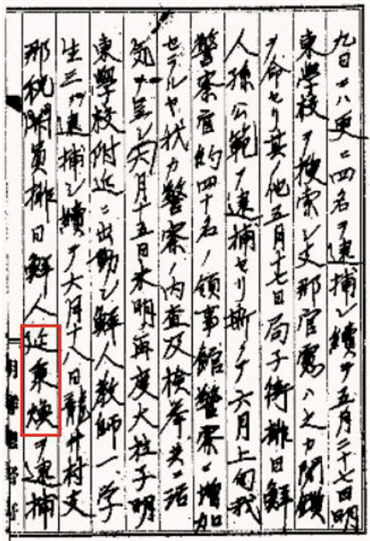 九日ニハ更ニ四名ヲ逮捕シ續テ五月二十七日明
東學校ヲ捜索シ支那官憲ハ之カ閉鎖
ヲ命セリ其ノ他五月十七日局子街排日鮮
人孫公範ヲ逮捕セリ斯クテ六月上旬我
警察官約四十名ノ領事館警察ニ增加
セラルヤ我カ警察ノ内査及檢擧共ニ活
気ヲ呈シ六月十五日未明再度大拉子明
東學校附近ニ出動シ鮮人教師一学
生三ヲ逮捕シ續テ六月十八日龍井村支
那税関員排日鮮人延秉煥ヲ逮捕